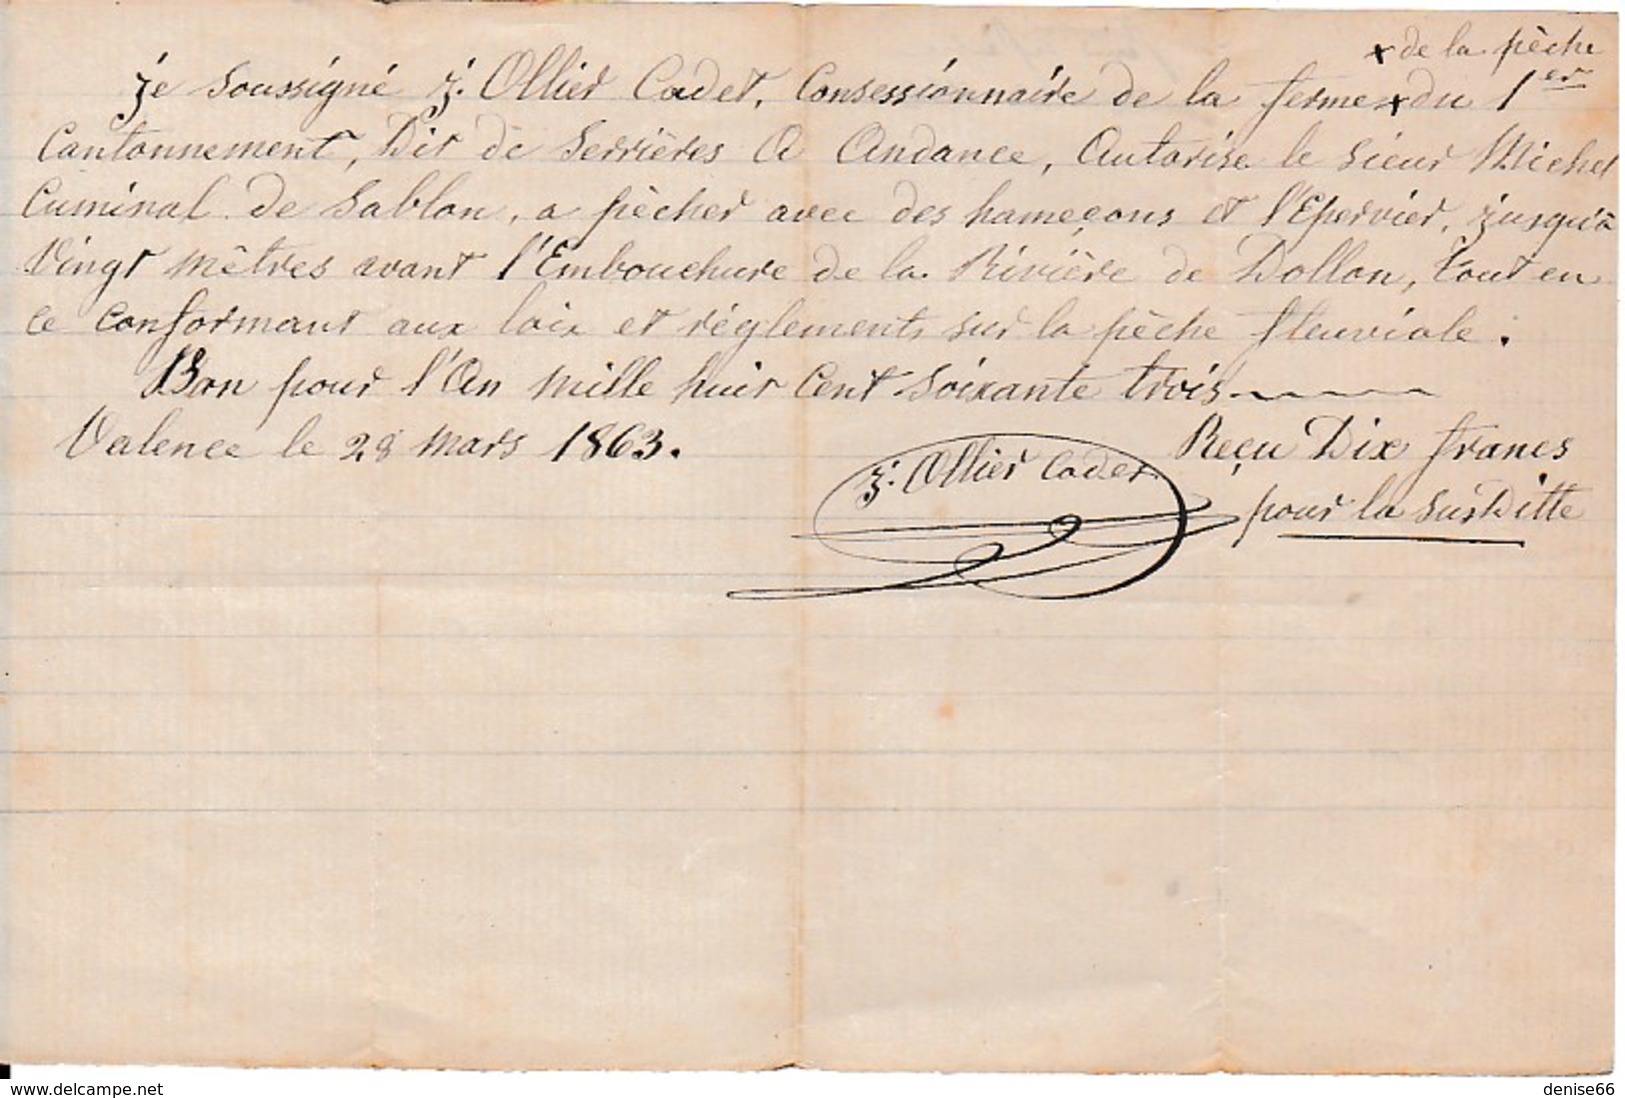 x de la pèche
je soussigné j. Ollier Cadet, Consessionnaire de la ferme x du 1er
Cantonnement, Dit de Serrières A Andance, Autorise le sieur Michel
Cuminal de Sablon, a pècher avec des hameçons et l'Epervier, jusqu'à
Vingt mêtres avant l'Embouchure de la Rivière de Dollon, tout en
ce conformant aux loix et réglements sur la pèche fluviale.
Bon pour l'An mille huit cent soixante trois
Valence le 28 mars 1863.
Reçu Dix francs
j. Ollier Cadet
pour la susditte
www.delcampe.net
denise66